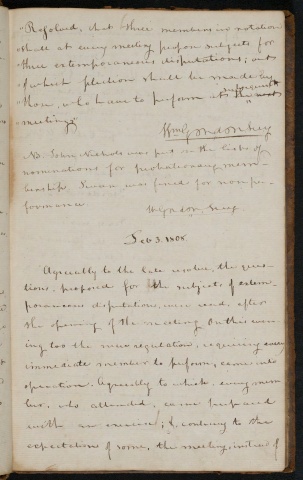 "Resolved, that three members in rotation
shall at every meeting propose subjects for
three extemporaneous disputations; out
of which selection shall be made by
those, who have to perform at the subsequent
meeting"
Wm Gordon Secy
NB. John Nichols was put on the list of
nominations for probationary mem-
bership. Swan was fined for nonper-
formance
W Gordon Secy
Feb 3. 1808.
Agreeably to the late resolve, the ques-
tions, proposed for the subjects of extem-
poraneous disputations, were read, after
the opening of the meeting. On this even-
ing too the new regulation, requiring every
immediate member to perform, came into
operation. Agreeably to which, every mem-
ber, who attended, came prepared
with an exercise; &, contrary to the
expectation of some, the meeting, instead of